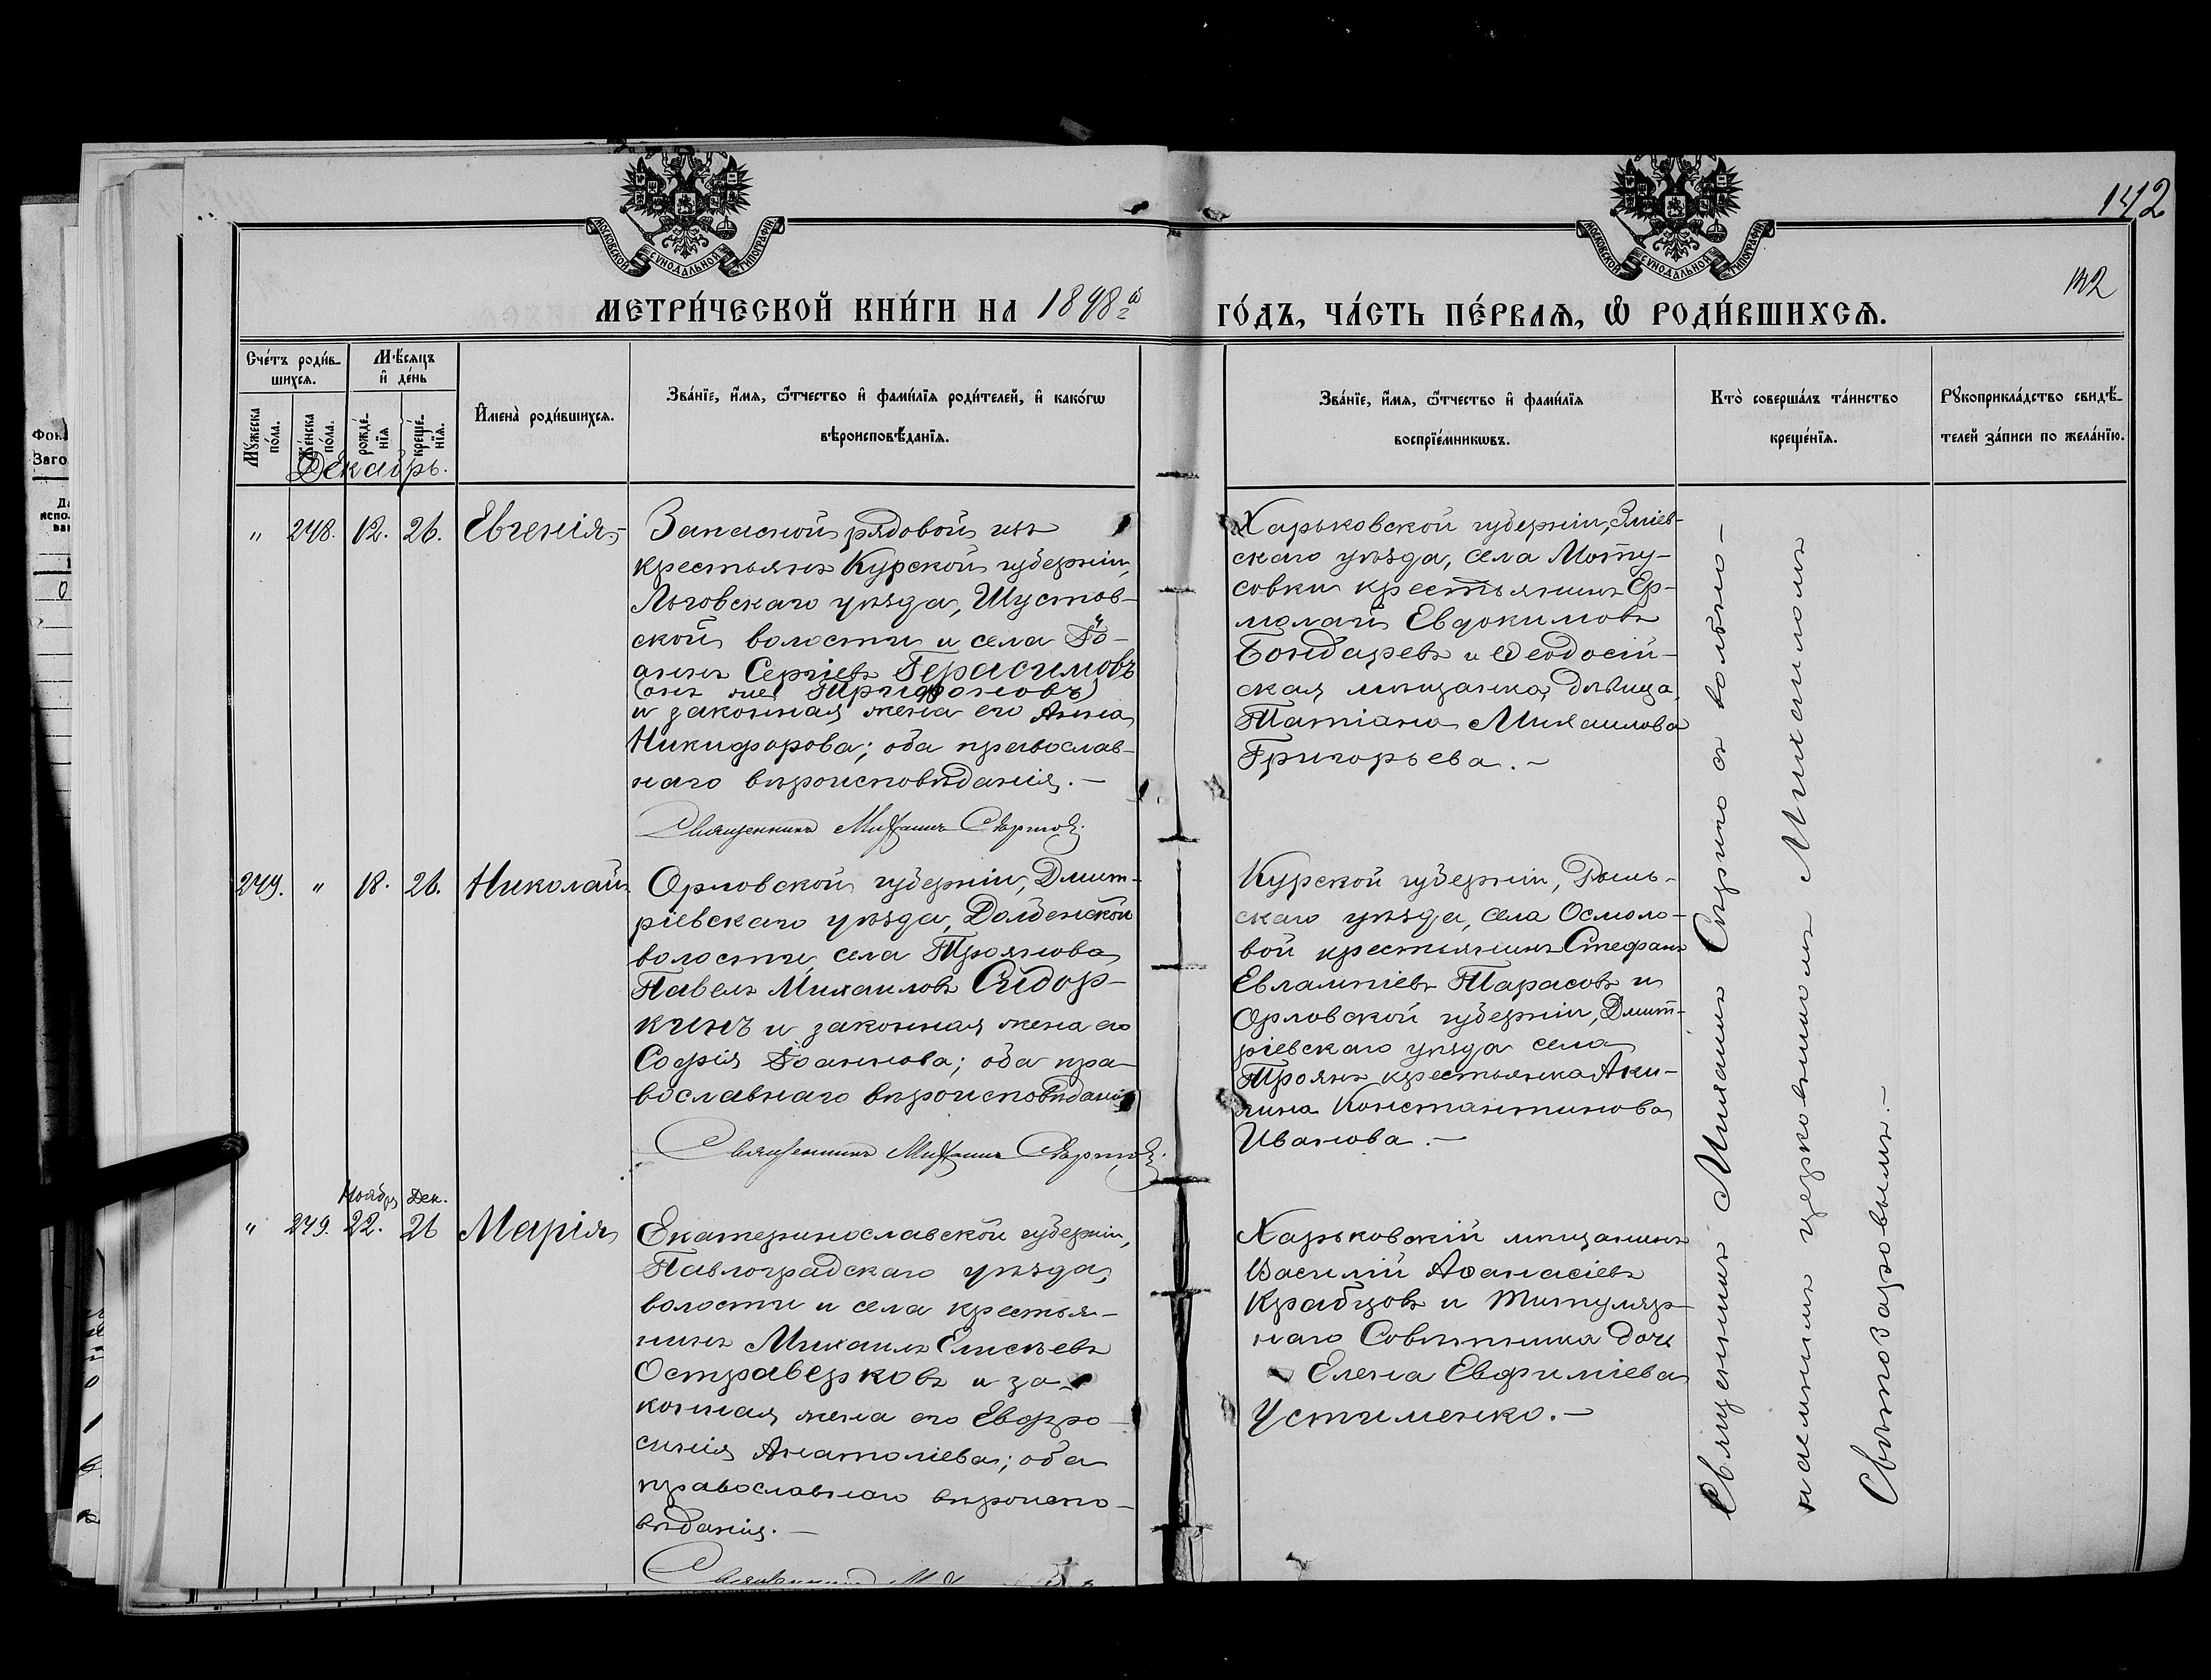 142
142
МОСКОВСКОЙ СѴНОДАЛЬНОЙ ТИПОГРАФІИ
МОСКОВСКОЙ СѴНОДАЛЬНОЙ ТИПОГРАФІИ
МЕТРИ́ЧЕСКОЙ КНИ́ГИ НА 1898й ГО́ДЪ, ЧА́СТЬ ПЕ́РВАѦ, Ѿ РОДИ́ВШИХСѦ.
Сче́тъ роди́вшихсѧ.
Мꙋ́жеска по́ла.
Же́нска по́ла.
Мѣ́сѧцъ и҆ де́нь
рожде́нїѧ
креще́нїѧ.
И҆мена̀ роди́вшихсѧ.
Зва́нїе, и҆́мѧ, ѻ҆́тчество и҆ фами́лїѧ роди́телей, и҆ како́гѡ
вѣроисповѣ́данїѧ.
Зва́нїе, и҆́мѧ, ѻ҆́тчество и҆ фами́лїѧ
воспрїе́мникѡвъ.
Кто̀ соверша́лъ та́инство
креще́нїѧ.
Рꙋкоприкла́дство свидѣ́-
телей за́писи по жела́нїю.
Декабрь.
" 248. 12. 26. Евгенія
Запасной рядовой изъ
крестьянъ Курской губерніи,
Льговскаго уѣзда, Шустов-
ской волости и села Іо-
аннъ Сергіевъ Герасимовъ
(онъ же Трифоновъ)
и законная жена его Анна
Никифорова; оба православ-
наго вѣроисповѣданія.—
Священникъ Михаилъ
Харьковской губерніи, Зміев-
скаго уѣзда, села Моту-
совки крестьянинъ Ер-
молай Евдокимовъ
Бондаревъ и Ѳеодосій-
ская мѣщанка, дѣвица,
Татіана Михаилова
Григорьева.—
249. " 18. 26. Николай
Орловской губерніи, Дмит-
ріевскаго уѣзда, Долбенской
волости села Троянова
Павелъ Михаиловъ Сидор-
кинъ и законная жена его
Софія Іоаннова; оба пра-
вославнаго вѣроисповѣданія
Священникъ Михаилъ
Курской губерніи, Рыль-
скаго уѣзда, села Осмоло-
вой крестьянинъ Стефанъ
Евлампіевъ Тарасовъ и
Орловской губерніи, Дмит-
ріевскаго уѣзда села
Троянъ крестьянка Аки-
лина Константинова
Иванова.—
Ноября Дек.
" 249. 22. 26 Марія
Екатеринославской губерніи,
Павлоградскаго уѣзда,
волости и села крестья-
нинъ Михаилъ Елисѣевъ
Остраверховъ и за-
конная жена его Евфро-
синія Анатоліева; оба
православнаго вѣроиспо-
вѣданія.—
Священникъ
Харьковскій мѣщанинъ
Василій Аѳанасіевъ
Крабцовъ и Титуляр-
наго Совѣтника дочь
Елена Евфиміева
Устименко.—
Священникъ Михаилъ съ вольно-
наемнымъ церковникомъ Михаиломъ
Свѣтозаровымъ.—